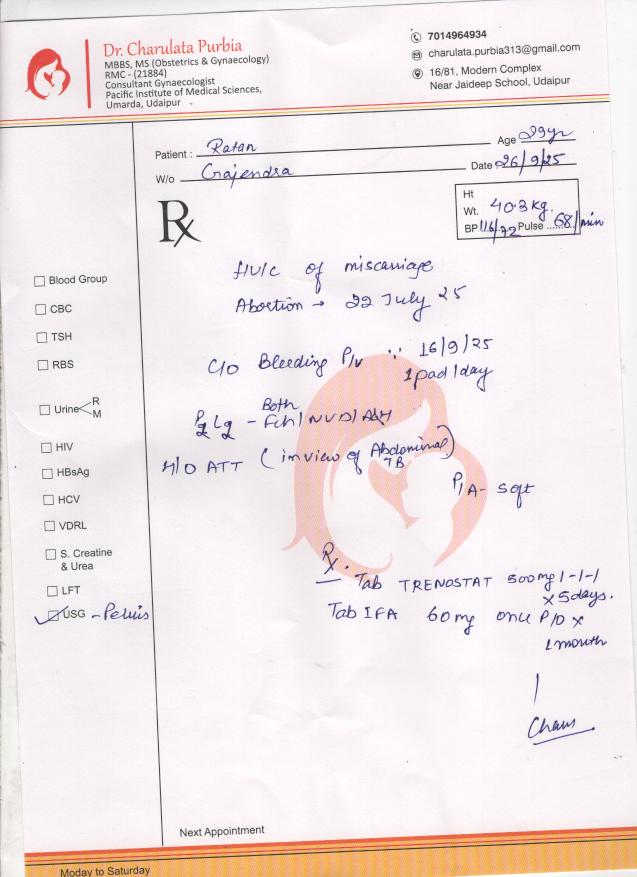 Dr. Charulata Purbia
MBBS, MS (Obstetrics & Gynaecology)
RMC - (21884)
Consultant Gynaecologist
Pacific Institute of Medical Sciences,
Umarda, Udaipur
7014964934
charulata.purbia313@gmail.com
16/81, Modern Complex
Near Jaideep School, Udaipur
Patient : Ratan Age 29yr
W/o Gajendra Date 26/9/25
Rx
Ht
Wt. 40.3 kg.
BP 116/72 Pulse 68/min
Blood Group
CBC
TSH
RBS
Urine R
M
HIV
HBsAg
HCV
VDRL
S. Creatine
& Urea
LFT
USG - Pelvis
f/u/c of miscarriage
Abortion → 22 July 25
C/O Bleeding P/V ∵ 16/9/25
1 pad/day
Both
P2L2 - Fch/NVD/A&H
H/O ATT (in view of Abdominal)
TB
P/A - Soft
Rx.
Tab TRENOSTAT 500mg 1-1-1
x 5days.
Tab IFA 60 mg once P/O x
1 month
Next Appointment
Moday to Saturday